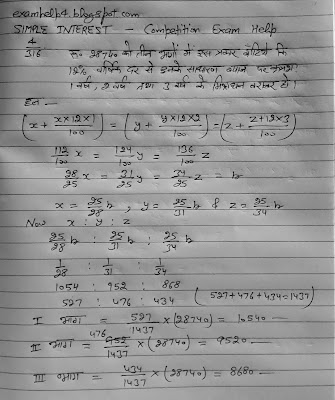 examhelp4.blogspot.com
SIMPLE INTEREST - Competition Exam Help
4/316 रू० 28740 को तीन भागों में इस प्रकार बाँटिये कि
12% वार्षिक दर से इनके साधारण ब्याज पर क्रमशः
1 वर्ष, 2 वर्ष तथा 3 वर्ष के मिश्रधन बराबर हों।
हल —
(x + x×12×1/100) = (y + y×12×2/100) = (z + z+12×3/100)
112/100 x = 124/100 y = 136/100 z
28/25 x = 31/25 y = 34/25 z = k
x = 25/28 k, y = 25/31 k & z = 25/34 k
Now x : y : z
25/28 k : 25/31 k : 25/34 k
1/28 : 1/31 : 1/34
1054 : 952 : 868
527 : 476 : 434 (527+476+434=1437)
I भाग = 527/1437 × (28740) = 10540 —
II भाग = 952 476/1437 × (28740) = 9520 —
III भाग = 434/1437 × (28740) = 8680 —